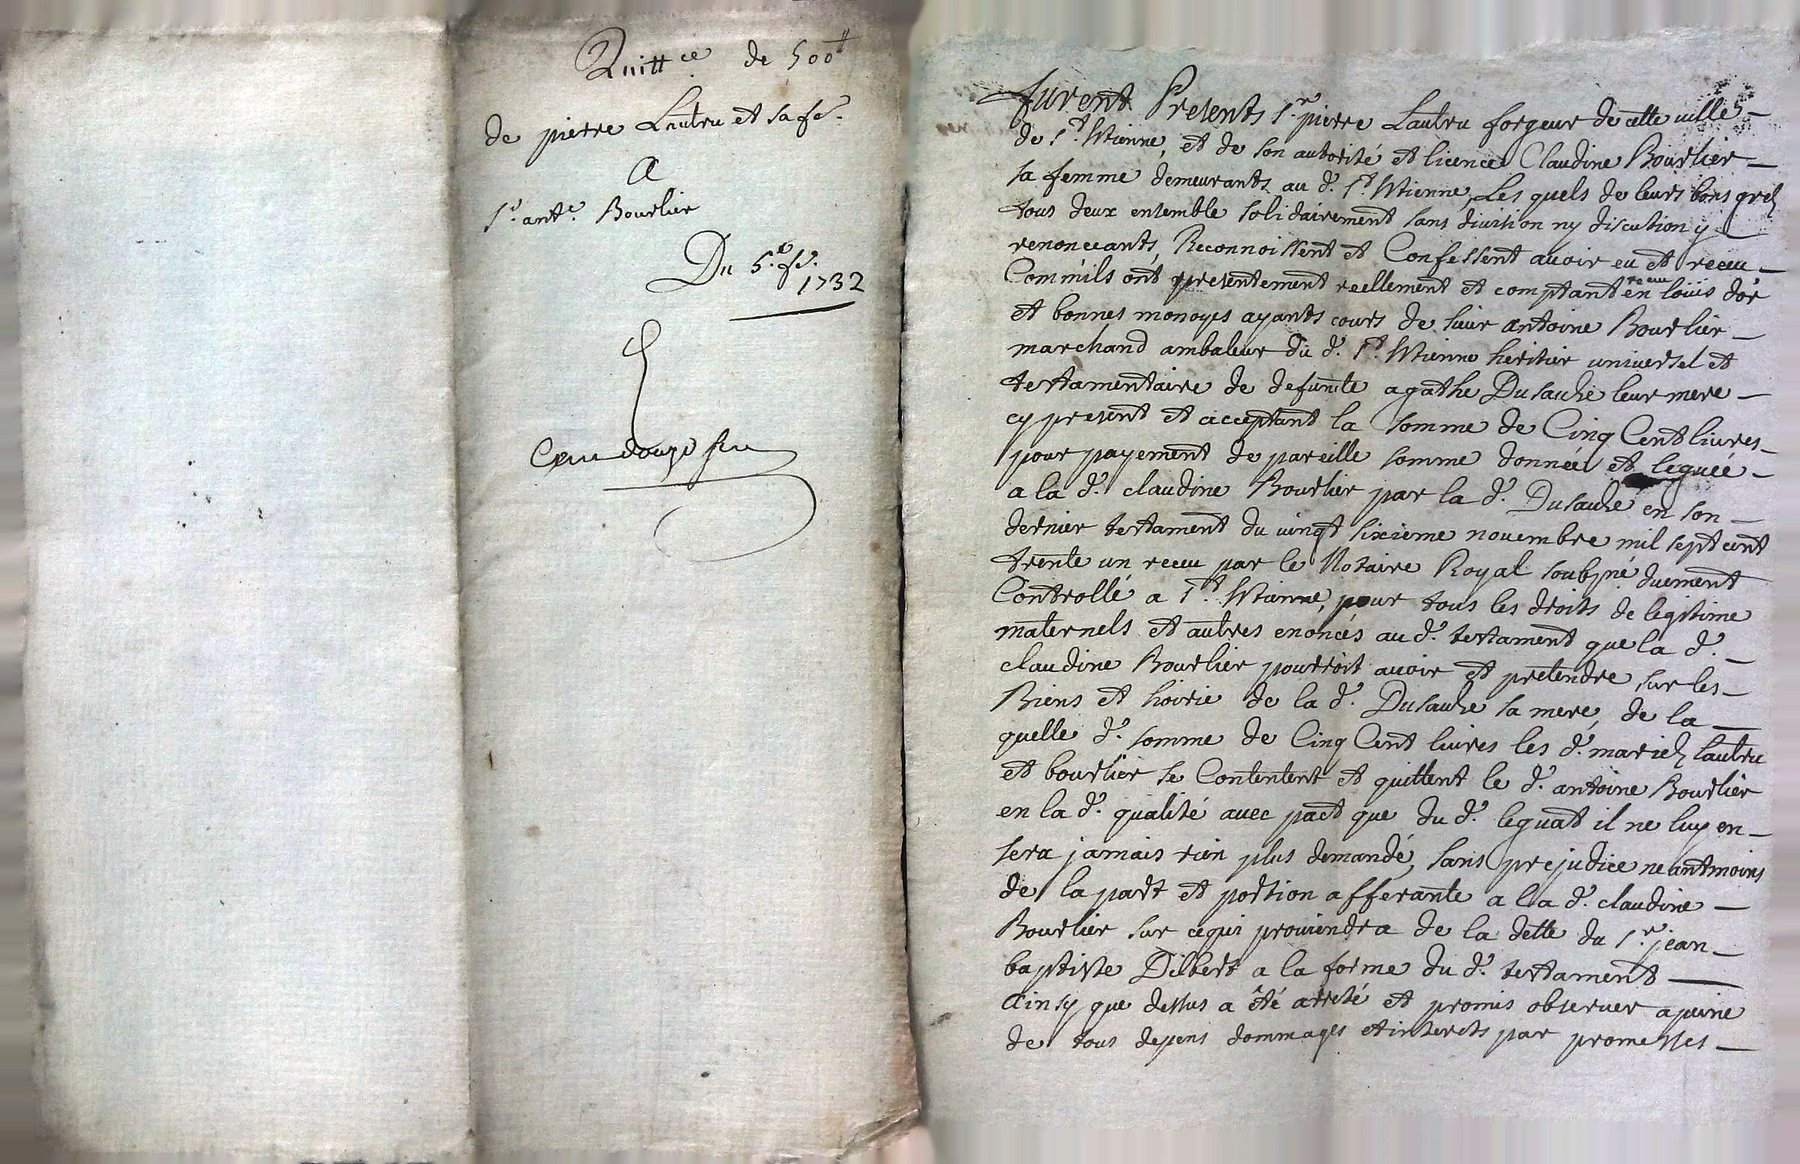 Quittce de 500#
de pierre Lautru et sa fe.
A
Sr. ante. Bourlier
Du 5e. fr.
1732
furent Presents Sr. pierre Lautru forgeur de cette ville
de St. Etienne, et de son autorité et licence Claudine Bourlier
sa femme demeurants au d. St. Etienne, Les quels de leurs bons grez
tous deux ensemble solidairement sans division ny discution y
renonceants, Reconnoissent et Confessent avoir eu et receu
Comm'ils ont presentement reellement et comptant receu en loüis d'or
et bonnes monoyes ayants cours de sieur antoine Bourlier
marchand ambaleur du d. St. Etienne heritier universel et
testamentaire de defuncte agathe Dusauze leur mere
cy present et acceptant la somme de Cinq Cent livres
pour payement de pareille somme donnée et leguée
a la d. claudine Bourlier par la d. Dusauze en son
dernier testament du vingt sixieme novembre mil sept cent
trente un receu par le Notaire Royal soubsné duement
Controllé a St. Etienne, pour tous les droits de legitime
maternels et autres enoncés au d. testament que la d.
claudine Bourlier pourroit avoir et pretendre sur les
Biens et hoirie de la d. Dusauze sa mere, de la
quelle d. somme de Cinq Cent livres les d. mariez lautru
et bourlier se Contentent et quittent le d. antoine Bourlier
en la d. qualité avec pact que du d. leguat il ne luy en
sera jamais rien plus demandé, sans prejudice neantmoins
de la part et portion afferante a la d. claudine
Bourlier sur cequi proviendra de la dette du Sr. jean
baptiste Dilbert a la forme du d. testament
Ainsy que dessus a été arreté et promis observer a peine
de tous depens dommages et interets par promesses